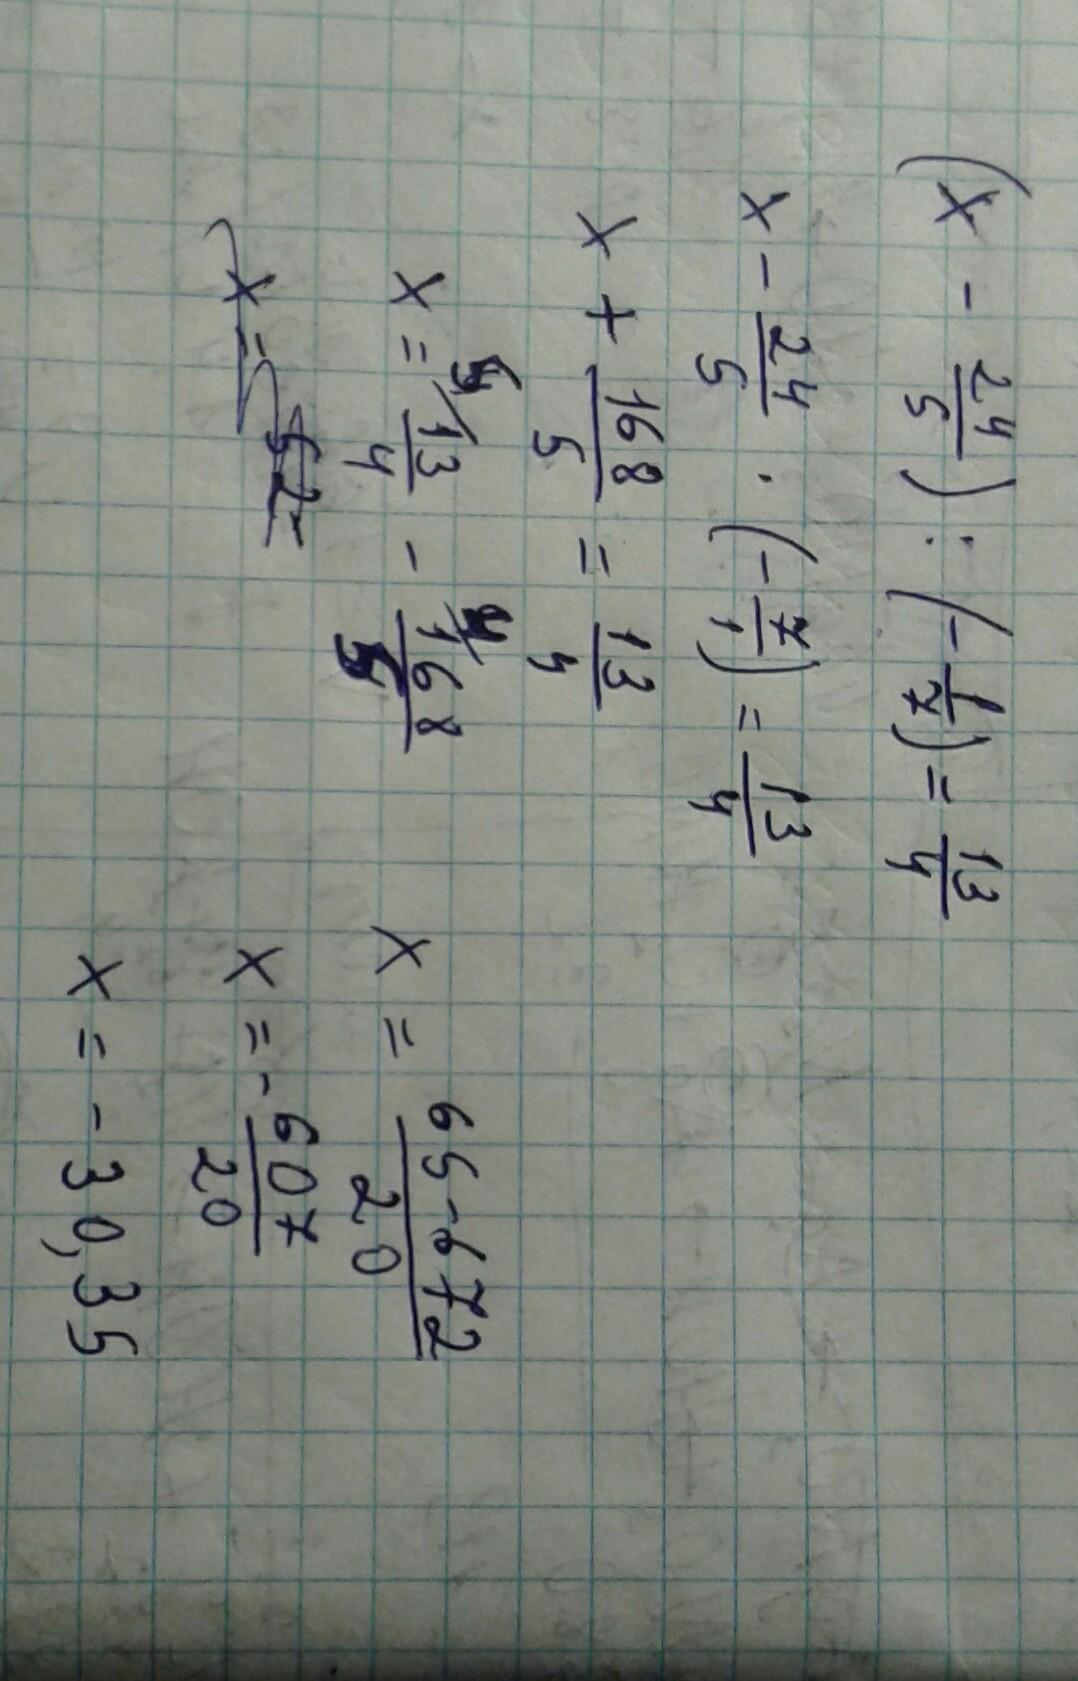 (x - 24/5) : (-1/7) = 13/4
x - 24/5 · (-7/1) = 13/4
x + 168/5 = 13/4
x = 5/13/4 - 4/168/5
x = 52
x = 65-672/20
x = - 607/20
x = - 30,35